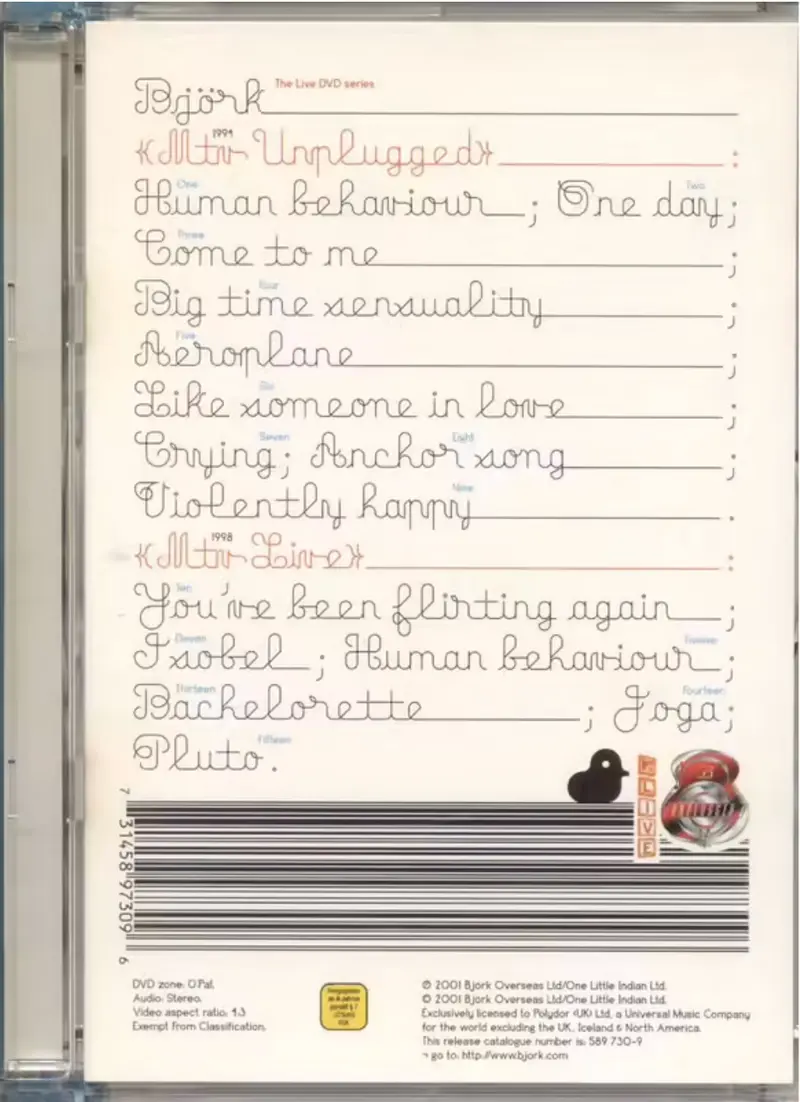 Björk The Live DVD series
1994
«Mtv Unplugged» :
One Two
Human behaviour ; One day;
Three
Come to me ;
Four
Big time sensuality ;
Five
Aeroplane ;
Six
Like someone in love ;
Seven Eight
Crying; Anchor song ;
Nine
Violently happy .
1998
«Mtv Live» :
Ten
You've been flirting again ;
Eleven Twelve
Isobel ; Human behaviour ;
Thirteen Fourteen
Bachelorette ; Joga;
Fifteen
Pluto.
LIVE
7 31458 97309 6
DVD zone: 0 Pal.
Audio: Stereo.
Video aspect ratio: 4:3
Exempt from Classification.
℗ 2001 Björk Overseas Ltd/One Little Indian Ltd.
© 2001 Björk Overseas Ltd/One Little Indian Ltd.
Exclusively licensed to Polydor (UK) Ltd, a Universal Music Company
for the world excluding the UK, Iceland & North America.
This release catalogue number is: 589 730-9
¬ go to: http://www.bjork.com